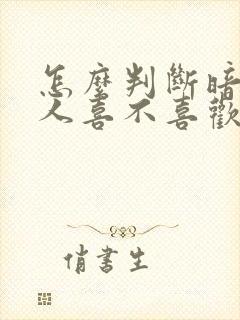 怎麼判斷暗
人喜不喜歡
俏書生